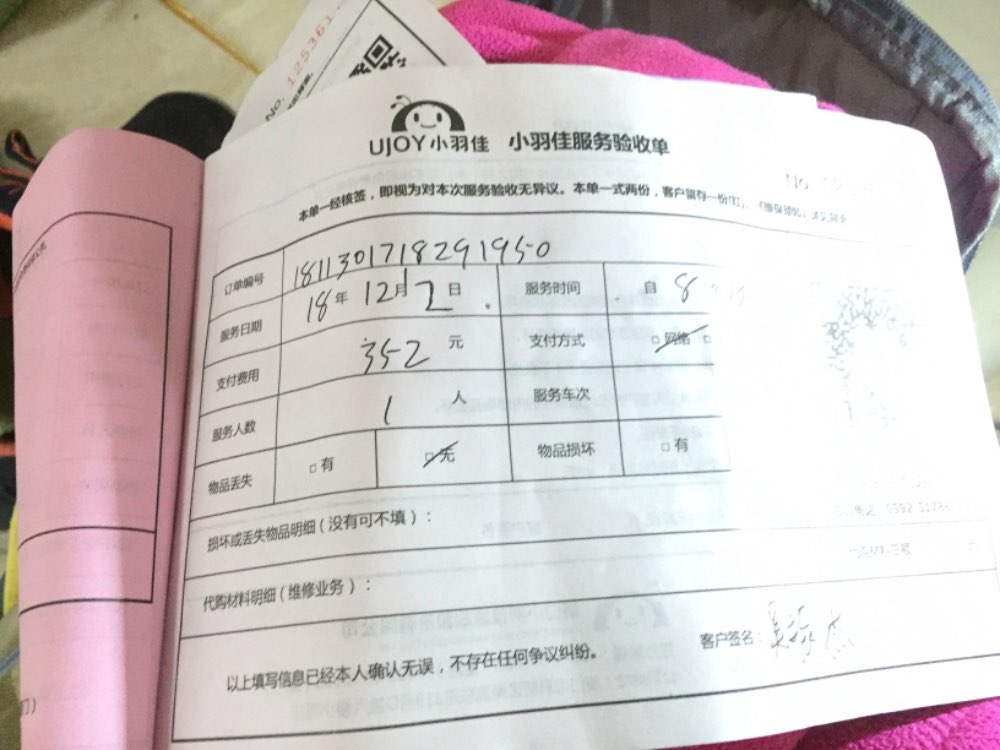 NO. 125361
UJOY小羽佳 小羽佳服务验收单
NO.
本单一经核签，即视为对本次服务验收无异议。本单一式两份，客户留存一份
订单编号 1811301718291950
服务日期 18年 12月 2日 服务时间 自 8
支付费用 352 元 支付方式 □网络 □
服务人数 1 人 服务车次
物品丢失 □有 □无 物品损坏 □有
电话 0592 5178
损坏或丢失物品明细（没有可不填）：
代购材料明细（维修业务）： 元
以上填写信息已经本人确认无误，不存在任何争议纠纷。 客户签名：